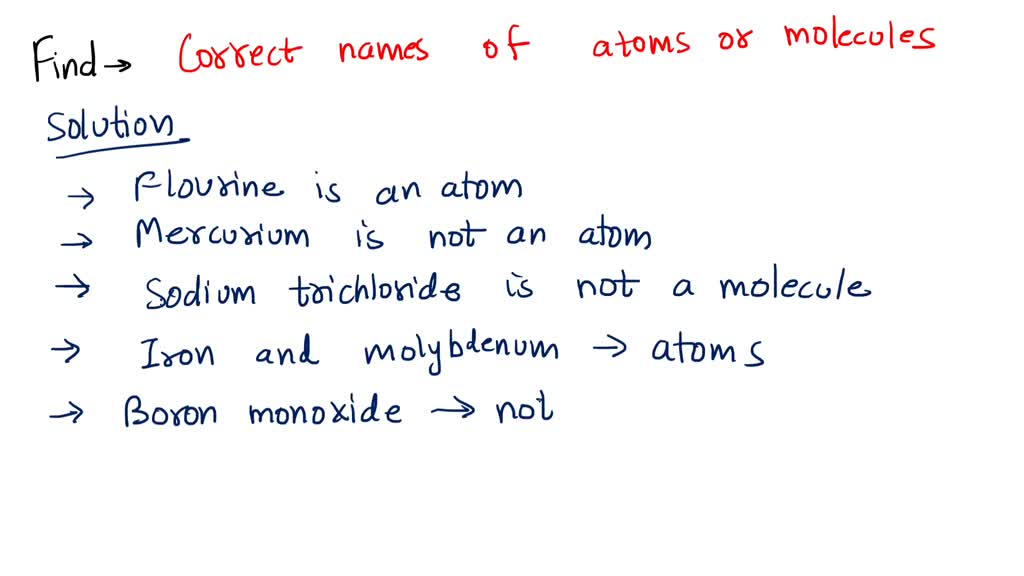 Find → Correct names of atoms or molecules
Solution
→ Flourine is an atom
→ Mercurium is not an atom
→ Sodium trichloride is not a molecule
→ Iron and molybdenum → atoms
→ Boron monoxide → not